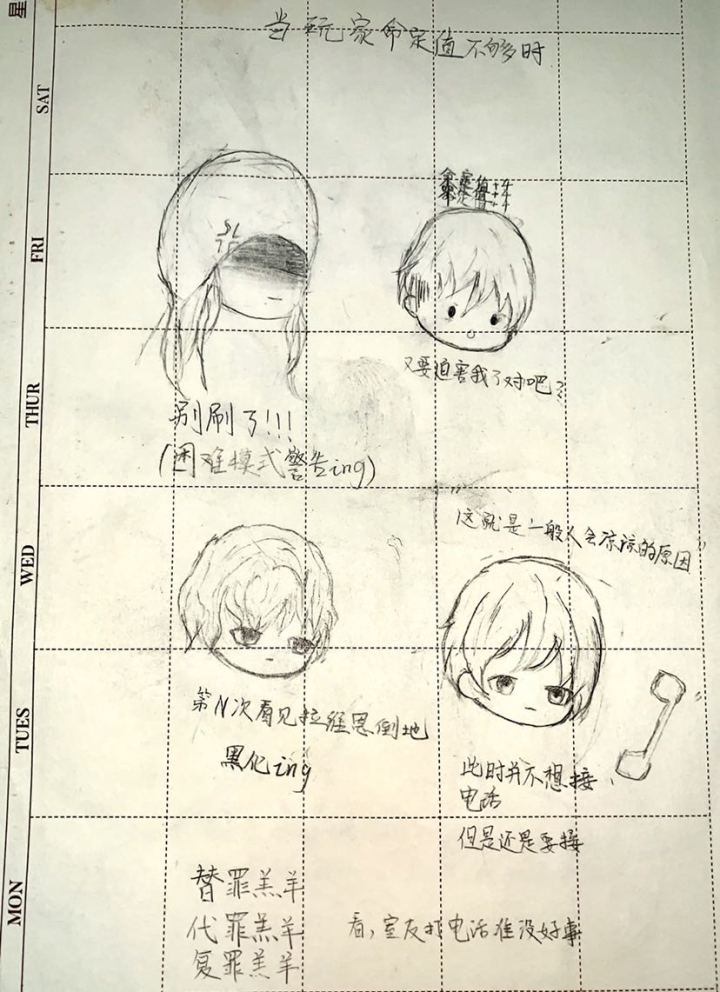 星
当玩家命定值不够时
SAT
FRI
又要迫害我了对吧？
THUR
别刷了!!!
(困难模式警告ing)
这就是一般人会凉凉的原因
WED
TUES
第N次看见拉维恩倒地
黑化ing
此时并不想接
电话
但是还是要接
MON
替罪羔羊
代罪羔羊
复罪羔羊
看,室友打电话准没好事